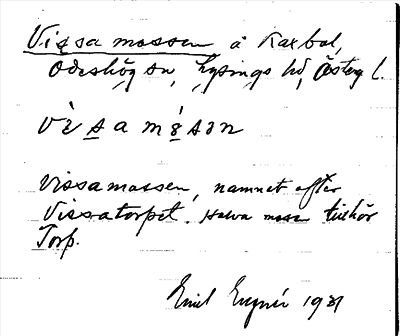 Vissamossen å Kaxbol,
Ödeshög sn, Lysings hd, Österg l.
vìsamósən
Vissamossen, namnet efter
Vissatorpet. Halva mossen tillhör
Torp.
Emil 1931